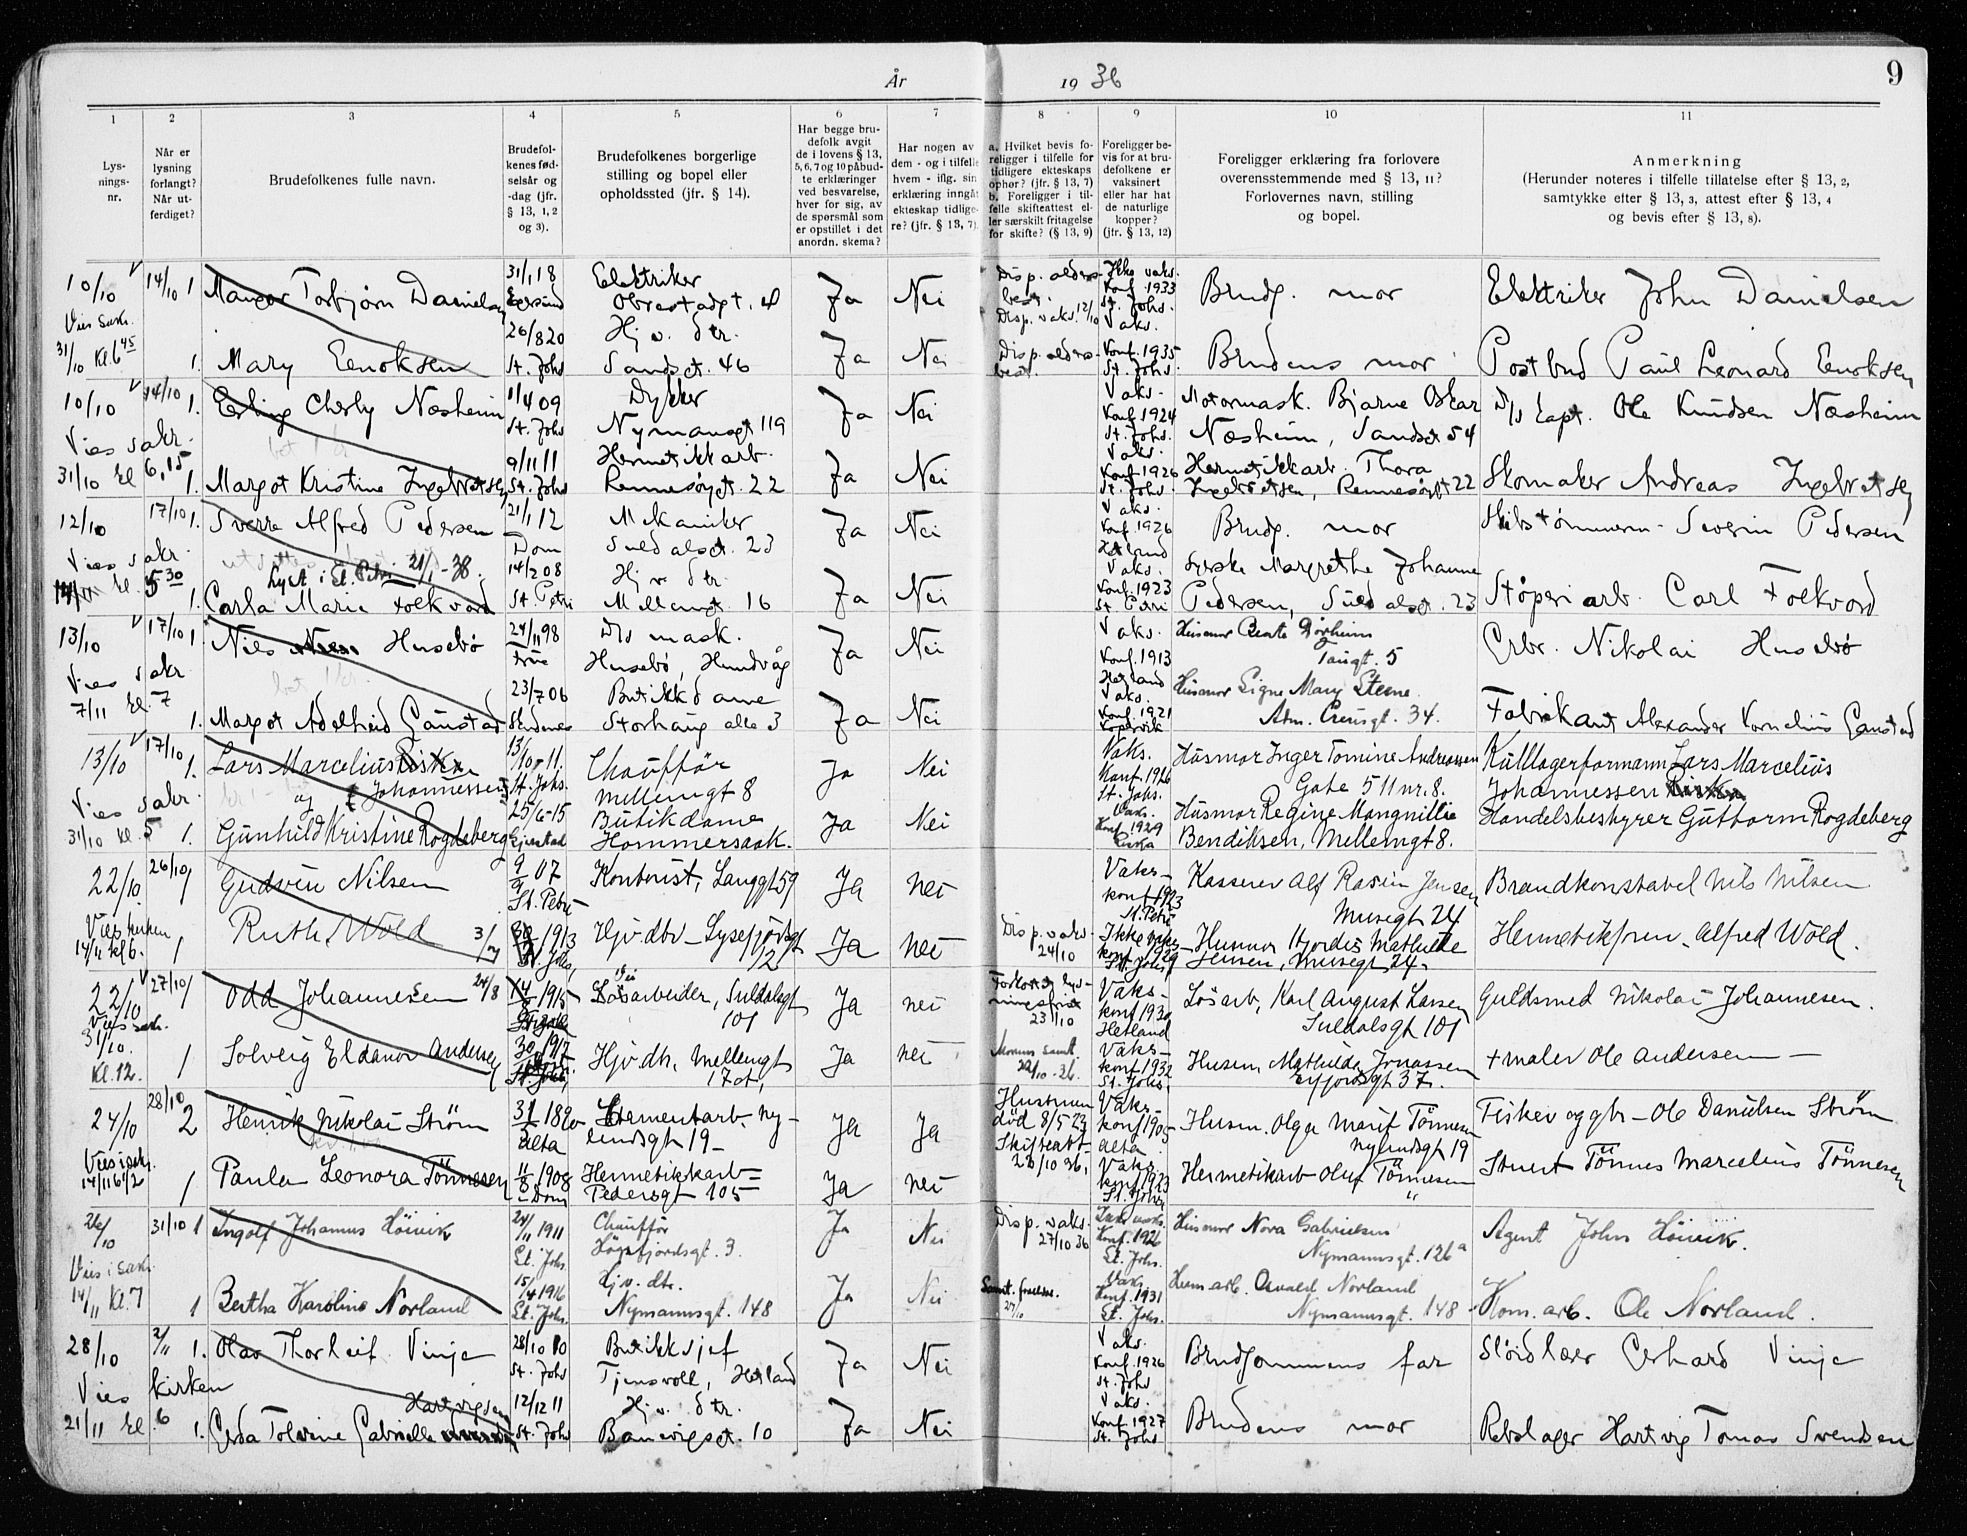 År 1936
9
1 2 3 4 5 6 7 8 9 10 11
Lys-
nings-
nr.
Når er
lysning
forlangt?
Når ut-
ferdiget?
Brudefolkenes fulle navn.
Brudefol-
kenes fød-
selsår og
-dag (jfr.
§ 13, 1, 2
og 3).
Brudefolkenes borgerlige
stilling og bopel eller
opholdssted (jfr. § 14).
Har begge bru-
defolk avgit
de i lovens § 13,
5, 6, 7 og 10 påbud-
te erklæringer
ved besvarelse,
hver for sig, av
de spørsmål som
er opstillet i det
anordn. skema?
Har nogen av
dem - og i tilfelle
hvem - iflg. sin
erklæring inngåt
ekteskap tidlige-
re? (jfr. § 13, 7)
a. Hvilket bevis fo-
religger i tilfelle for
tidligere ekteskaps
ophør? (jfr. § 13, 7)
b. Foreligger i til-
felle skifteattest el-
ler særskilt fritagelse
for skifte? (§ 13, 9)
Foreligger be-
vis for at bru-
defolkene er
vaksinert
eller har hat
de naturlige
kopper?
(jfr. § 13, 12)
Foreligger erklæring fra forlovere
overensstemmende med § 13, 11?
Forlovernes navn, stilling
og bopel.
Anmerkning
(Herunder noteres i tilfelle tillatelse efter § 13, 2,
samtykke efter § 13, 3, attest efter § 13, 4
og bevis efter § 13, 8).
10/10 14/10 1 Torbjørn Danielsen 31/1 18 Egersund Elektriker Ja Nei Disp. alders-best. Disp. vaks. 12/10 Ikke vaks. Konf. 1933 St. Johs. Brudg. mor Elektriker John Danielsen
Vies sakr. 31/10 Kl. 6 45 1. Mary Enoksen 26/8 20 St. Johs Hj v. dtr. Sandsgt. 46 Ja Nei Disp. alders-best. Vaks. Konf. 1935 St. Johs. Brudens mor Postbud Paul Leonard Enoksen
10/10 14/10 1. Erling Cherly Næsheim 11/4 09 St. Johs Dykker Nymansgt 119 Ja Nei Vaks. Konf. 1924 St. Johs. Motormask. Bjarne Oskar Næsheim, Sandsgt 54 D/s kapt. Ole Knudsen Næsheim
Vies sakr. 31/10 kl 6,15 1. Margot Kristine Ingebretsen 9/11 11 St. Johs Hermetikkarb. Rennesøygt. 22 Ja Nei Vaks. Konf. 1926 St. Johs. Hermetikkarb. Thora Ingebretsen, Rennesøygt 22 Skomaker Andreas Ingebretsen
12/10 17/10 1. Sverre Alfred Pedersen 21/1 12 Dom Mekaniker Suldalsgt. 23 Ja Nei Vaks. Konf. 1926 Hetland Brudg. mor Skibstømmerm. Severin Pedersen
Vies sakr. kl. 5 30 Lyst i St. Petri 21/1-38.
1. Carla Marie Folkvord 14/2 08 St. Petri Hj v. dtr. Mellemgt. 16 Ja Nei Vaks. Konf. 1923 St. Petri Syerske Margrethe Johanne Pedersen, Suldalsgt. 23 Støperiarb. Carl Folkvord
13/10 17/10 1 Nils Husebø 24/11 98 D/s mask. Husebø, Hundvåg Ja Nei Vaks. Konf. 1913 Hetland Husmor Beate Tangt. 5 Grbr. Nikolai Husebø
Vies sakr. 7/11 kl. 7 1. Margot Adelheid Gaustad 23/7 06 Butikkdame Storhaug alle 3 Ja Nei Vaks. Konf. 1921 Kopervik Husmor Signe Mary Steene Adm. Creusgt. 34. Fabrikant Alexander Kornelius Gaustad
13/10 17/10 1. Lars Marcelius Johannessen 13/10-11. St. Johs. Chauffør Mellemgt 8 Ja Nei Vaks. Konf. 1926 St. Johs. Husmor Inger Tomine Andreassen Gate 511 nr. 8. Kullagerformann Lars Marcelius Johannessen
Vies sakr. 31/10 kl. 5 1. og Gunhild Kristine Rogdeberg 25/6-15 Butikdame Hommersaak. Ja Nei Vaks. Konf. 1929 Husmor Regine Mangnillie Bendiksen, Mellemgt 8. Handelsbestyrer Guttorm Rogdeberg
22/10 26/10 1 Gudvin Nilsen 9/9 07 St. Petri Kontorist, Langgt 59 Ja nei Vaks- konf 1923 St. Petri Kasserer Alf Rasin Jensen Musegt 24 Brandkonstabel Nils Nilsen
Vies kirken 14/11 kl 6. 1 Ruth Wold 3/7 1913 St. Johs, Hjv. dtr - Lysefjordsgt 12 Ja nei Disp. vaks. 24/10 Ikke vaks- konf 1929 St. Johs Husmor Hjordis Mathilde Jensen, Musegt 24. Hermetikkfren. Alfred Wold.
22/10 27/10 1 Odd Johannesen 24/8 1915 Løsarbeider, Suldalsgt 101 Ja nei 23/10 Vaks- konf 1930 Hetland Løsarb, Karl August Larsen Suldalsgt 101 Guldsmed Nikolai Johannesen.
Vies sakr. 31/10. Kl. 12. 1 Solveig Eldanor Andersen 30/ 1917 Hjv. dtr, Mellemgt 17 Ja nei Morens samt. 22/10-36. Vaks- konf 1932 St. Johs. Husm. Mathilde Jonassen gt 37. + maler Ole Andersen -
24/10 28/10 2 Henrik Nikolai Strøm 31/ 1890 Alta Sementarb. Ny-lundsgt 19 - Ja Ja Hustruen død 8/5 23 Skifteatt- 28/10 36, Vaks- konf 1905 Alta Husm. Olga Marie Tønnesen Nylundsgt 19 Fisker og gbr - Ole Danielsen Strøm
Vies i sakr. 14/11 6 1/2 1 Paula Leonora Tönnesen 11/8 1908 - Dom Hermetikkarb = Pedersgt 105 - Ja nei Vaks- konf 1923 St. Johs Hermetikarb Oluf Tönnesen " Stuert Tönnes Marcelius Tönnesen
26/10 31/10 1 Ingolf Johannes Höivik 24/11 1911 St. Johs. Chauffør Högsfjordsgt. 3. Ja Nei Disp. vaks. 27/10 36 Konf. 1926 St. Johs. Husmor Nora Gabrielsen Nymannsgt. 126a Agent John Höivik.
Vies i sakr. 14/11 Kl. 7 1 Bertha Karoline Norland 15/4 1916 St. Johs. Hj. v. dtr. Nymannsgt. 148 Ja Nei 27/10 Vaks. Konf. 1931 St. Johs. Herm. arb. Osvald Norland Nymannsgt. 148 Hom. arb. Ole Norland.
28/10 2/11 1. Olav Thorleif Vinje 28/10 10 St. Johs Butikksjef Tjensvoll, Hetland Ja Nei Vaks. Konf. 1926 St. Johs Brudgommens far Sløidlærer Gerhard Vinje
Vies kirken 21/11 kl. 6 1. Gerda Tolvine Gabrielle Hartvigsen 12/12 11 St. Johs Hj v. dtr. Banevigsgt. 10 Ja Nei Vaks. Konf. 1927 St. Johs Brudens mor Rebslager Hartvig Tomas Svendsen